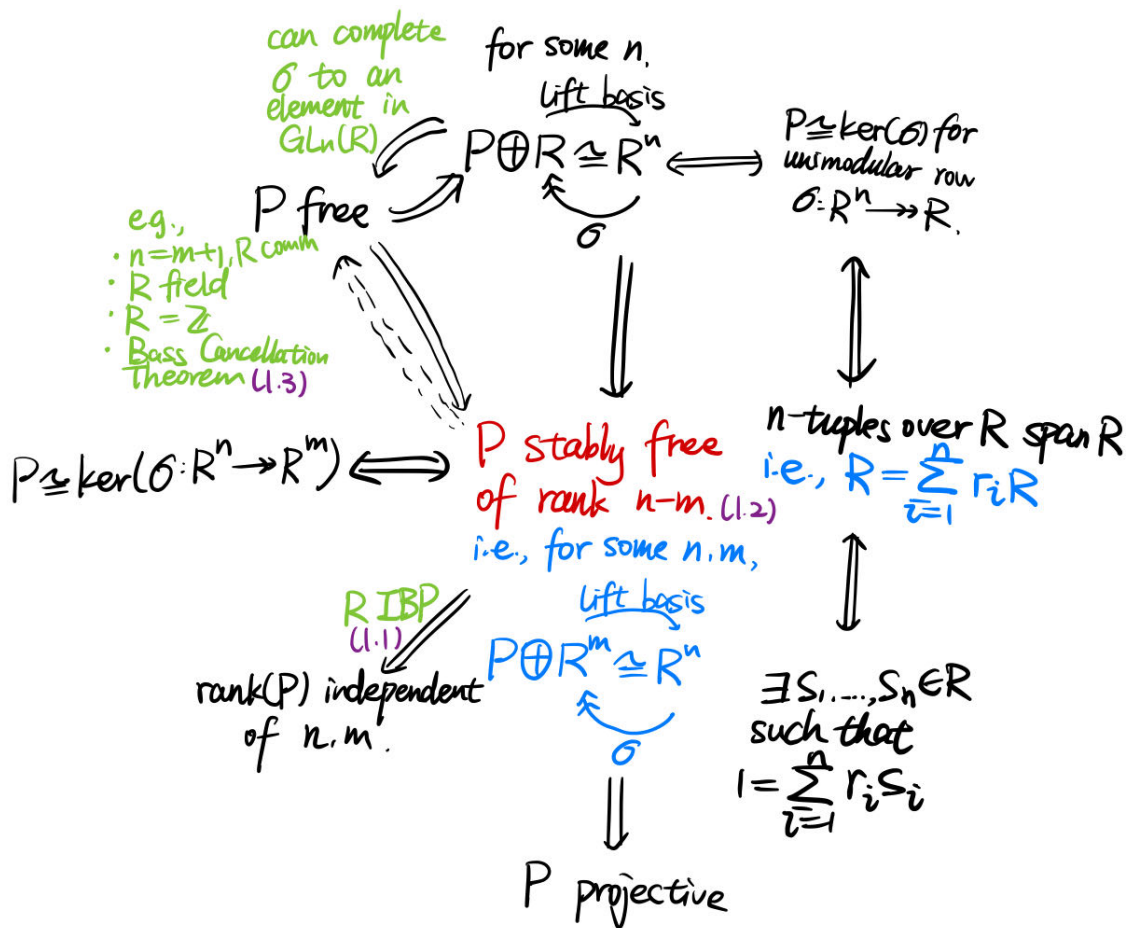 can complete
σ to an
element in
GLn(R)
for some n.
lift basis
P⊕R ≃ Rⁿ
σ
P≃ker(σ) for
unimodular row
σ:Rⁿ↠R.
P free
e.g.,
· n=m+1, R comm
· R field
· R = ℤ
· Bass Cancellation
Theorem (1.3)
P≃ker(σ:Rⁿ↠Rᵐ)
P stably free
of rank n-m. (1.2)
i.e., for some n.m,
lift basis
P⊕Rᵐ≃Rⁿ
σ
n-tuples over R span R
i.e., R = ∑ⁿᵢ₌₁ rᵢR
R IBP
(1.1)
rank(P) independent
of n.m.
∃ S₁,...,Sₙ∈R
such that
1=∑ⁿᵢ₌₁ rᵢSᵢ
P projective